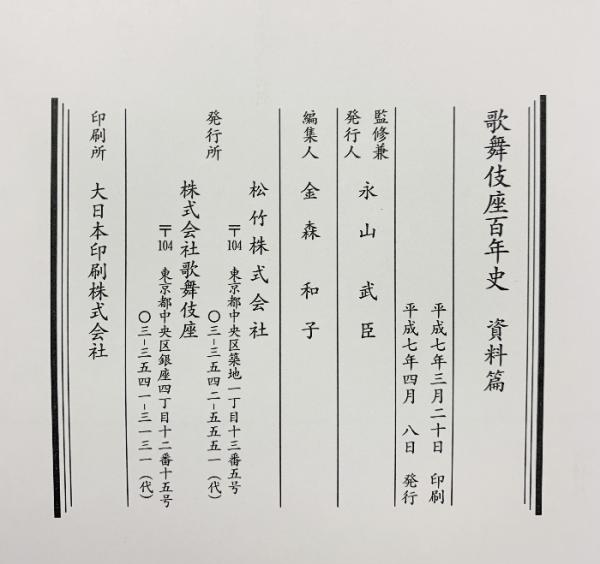 歌舞伎座百年史 資料篇
平成七年三月二十日 印刷
平成七年四月 八日 発行
監修兼
発行人 永山武臣
編集人 金森和子
発行所 松竹株式会社
〒104 東京都中央区築地一丁目十三番五号
〇三-三五四二-五五五一(代)
株式会社歌舞伎座
〒104 東京都中央区銀座四丁目十二番十五号
〇三-三五四一-三一三一(代)
印刷所 大日本印刷株式会社